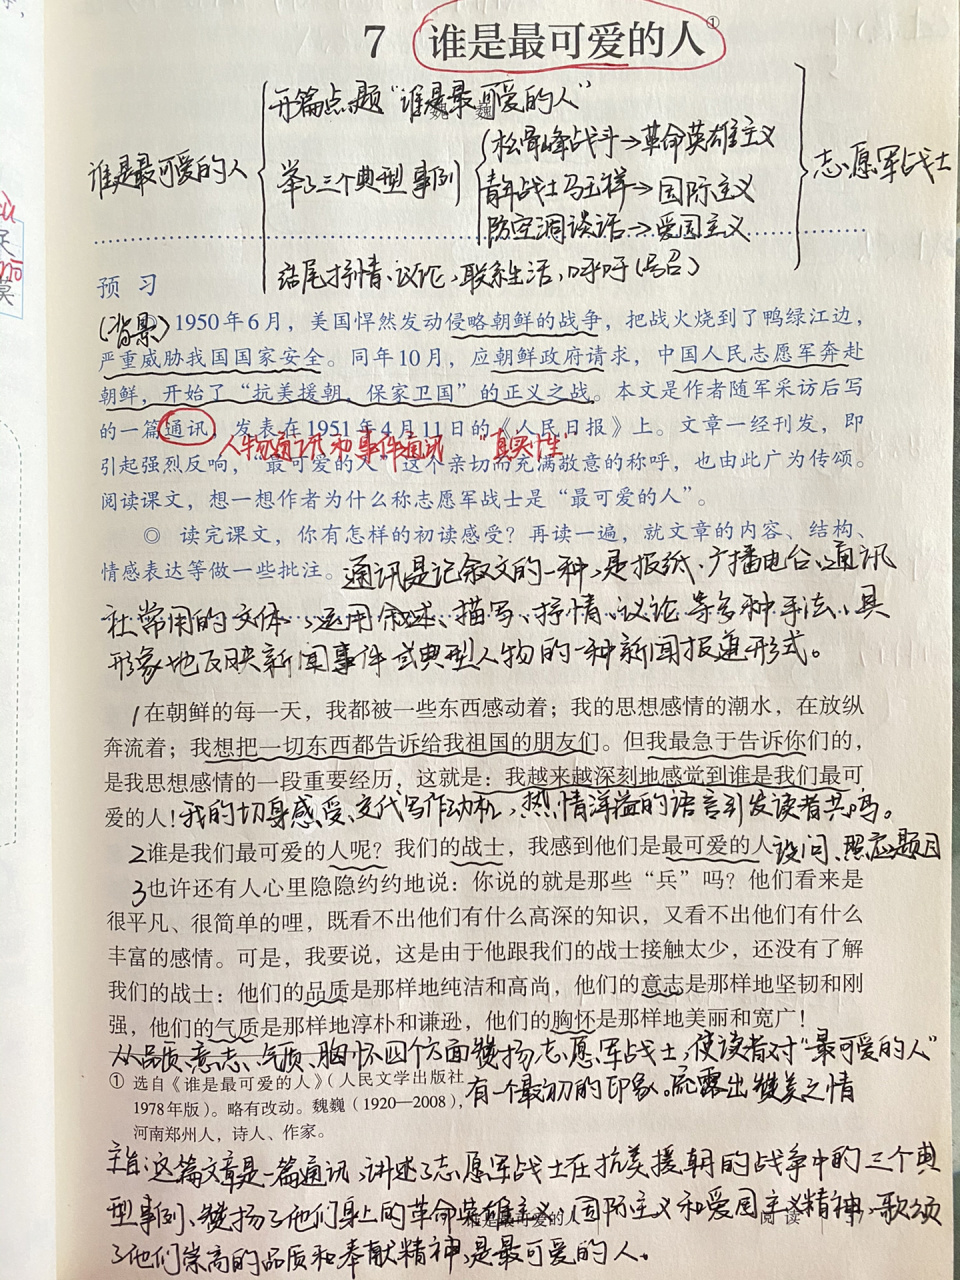 7 谁是最可爱的人①
魏巍
开篇点题“谁是最可爱的人”
谁是最可爱的人
举了三个典型事例
松骨峰战斗→革命英雄主义
青年战士马玉祥→国际主义
防空洞谈话→爱国主义
志愿军战士
结尾抒情、议论,联系生活,呼吁(号召)
预 习
(背景)
1950年6月,美国悍然发动侵略朝鲜的战争,把战火烧到了鸭绿江边,
严重威胁我国国家安全。同年10月,应朝鲜政府请求,中国人民志愿军奔赴
朝鲜,开始了“抗美援朝,保家卫国”的正义之战。本文是作者随军采访后写
的一篇通讯,发表在1951年4月11日的《人民日报》上。文章一经刊发,即
人物通讯和事件通讯 “真实性”
引起强烈反响,“最可爱的人”这个亲切而充满敬意的称呼,也由此广为传颂。
阅读课文,想一想作者为什么称志愿军战士是“最可爱的人”。
◎ 读完课文,你有怎样的初读感受?再读一遍,就文章的内容、结构、
情感表达等做一些批注。
通讯是记叙文的一种,是报纙、广播电台、通讯
社常用的文体,运用叙述、描写、抒情、议论等多种手法、具
形象地反映新闻事件或典型人物的一种新闻报道形式。
1在朝鲜的每一天,我都被一些东西感动着;我的思想感情的潮水,在放纵
奔流着;我想把一切东西都告诉给我祖国的朋友们。但我最急于告诉你们的,
是我思想感情的一段重要经历,这就是:我越来越深刻地感觉到谁是我们最可
爱的人!我的切身感受、交代写作动机,热情洋溢的语言引发读者共鸣。
2谁是我们最可爱的人呢?我们的战士,我感到他们是最可爱的人。设问、照应题目
3也许还有人心里隐隐约约地说:你说的就是那些“兵”吗?他们看来是
很平凡、很简单的哩,既看不出他们有什么高深的知识,又看不出他们有什么
丰富的感情。可是,我要说,这是由于他跟我们的战士接触太少,还没有了解
我们的战士:他们的品质是那样地纯洁和高尚,他们的意志是那样地坚韧和刚
强,他们的气质是那样地淳朴和谦逊,他们的胸怀是那样地美丽和宽广!
从品质、意志、气质、胸怀四个方面赞扬志愿军战士,使读者对“最可爱的人”
有一个最初的印象。流露出赞美之情
① 选自《谁是最可爱的人》(人民文学出版社
1978年版)。略有改动。魏巍(1920—2008),
河南郑州人,诗人、作家。
主旨:这篇文章是一篇通讯,讲述了志愿军战士在抗美援朝的战争中的三个典
型事例、赞扬了他们身上的革命英雄主义、国际主义和爱国主义精神,歌颂
谁是最可爱的人 阅 读 37
了他们崇高的品质和奉献精神,是最可爱的人。